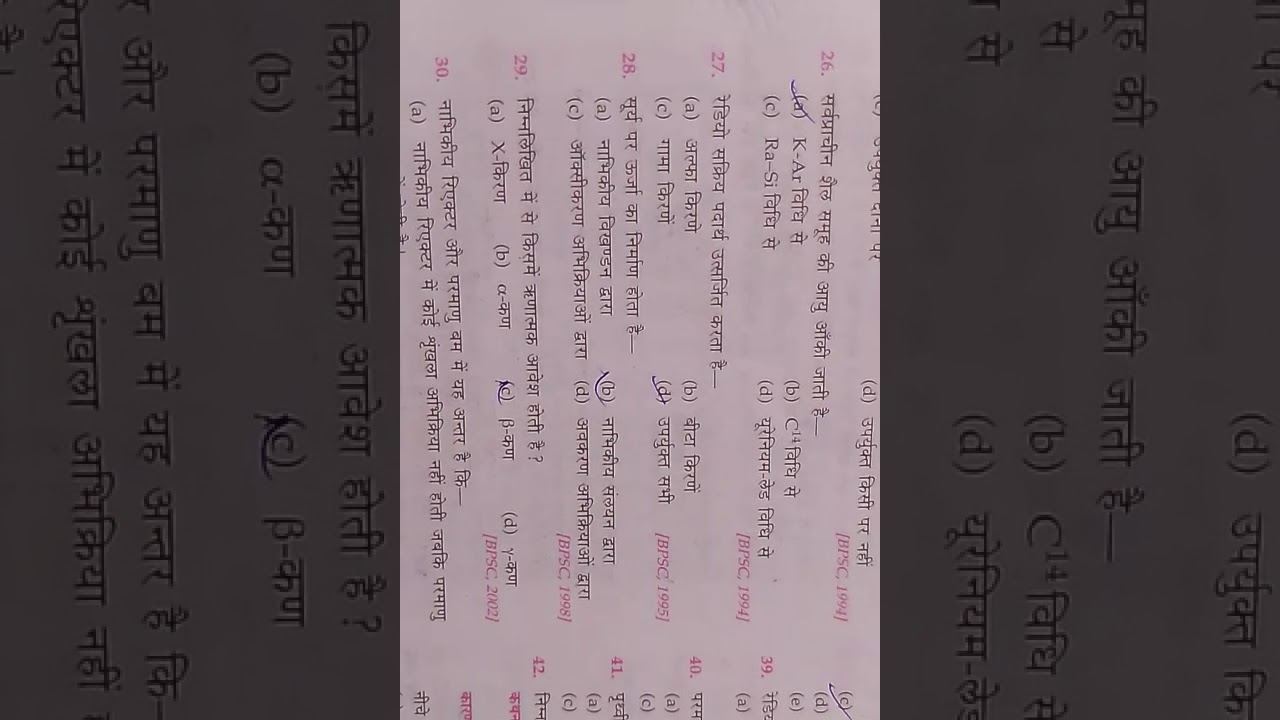 (d) उपर्युक्त किसी पर नहीं
[BPSC, 1994]
26. सर्वप्राचीन शैल समूह की आयु आँकी जाती है—
(a) K-Ar विधि से (b) C¹⁴ विधि से
(c) Ra–Si विधि से (d) यूरेनियम-लेड विधि से
[BPSC, 1994]
27. रेडियो सक्रिय पदार्थ उत्सर्जित करता है—
(a) अल्फा किरणे (b) बीटा किरणें
(c) गामा किरणें (d) उपर्युक्त सभी
[BPSC, 1995]
28. सूर्य पर ऊर्जा का निर्माण होता है—
(a) नाभिकीय विखण्डन द्वारा (b) नाभिकीय संलयन द्वारा
(c) ऑक्सीकरण अभिक्रियाओं द्वारा (d) अवकरण अभिक्रियाओं द्वारा
[BPSC, 1998]
29. निम्नलिखित में से किसमें ऋणात्मक आवेश होती है ?
(a) X-किरण (b) α-कण (c) β-कण (d) γ-कण
[BPSC, 2002]
30. नाभिकीय रिएक्टर और परमाणु बम में यह अन्तर है कि—
(a) नाभिकीय रिएक्टर में कोई श्रृंखला अभिक्रिया नहीं होती जबकि परमाणु
(c)
(d)
(e)
39. रेडि
(a)
40. परम
(a)
(c)
41. पृथ्वी
(a)
(c)
42. निम्न
कथन
कारण
नीचे